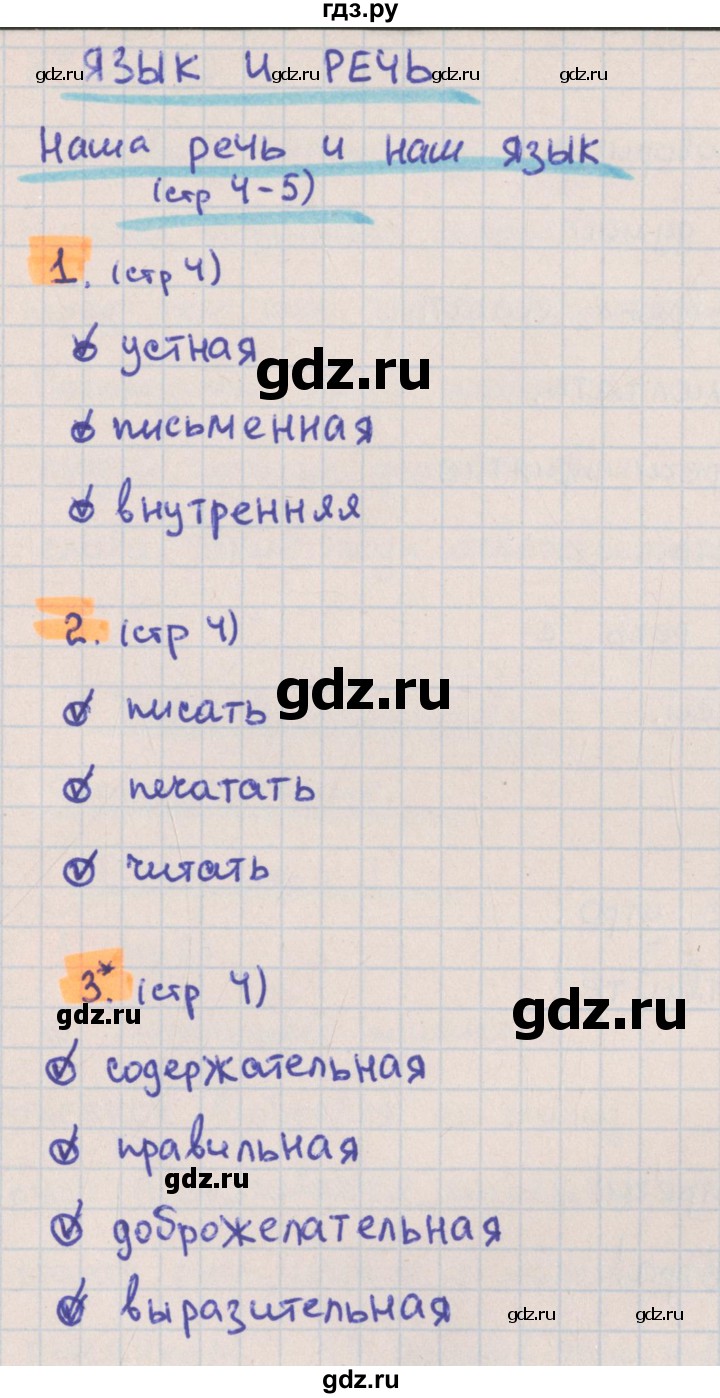 гдз.ру
ЯЗЫК И РЕЧЬ
gdz.ru gdz.ru gdz.ru gdz.ru
Наша речь и наш язык
(стр 4-5)
1. (стр 4)
устная
gdz.ru
письменная
внутренняя
2. (стр 4)
gdz.ru
писать
печатать
читать
3.* (стр 4)
gdz.ru
gdz.ru
содержательная
правильная
gdz.ru
доброжелательная
выразительная
gdz.ru gdz.ru
gdz.ru